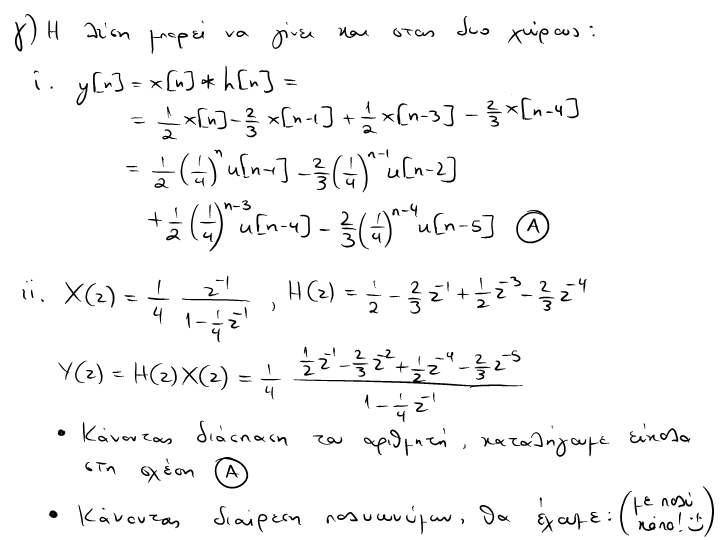 γ) Η λύση μπορεί να γίνει και στους δυο χώρους:
i. y[n] = x[n] * h[n] =
= 1/2 x[n] - 2/3 x[n-1] + 1/2 x[n-3] - 2/3 x[n-4]
= 1/2 (1/4)^n u[n-1] - 2/3 (1/4)^{n-1} u[n-2]
+ 1/2 (1/4)^{n-3} u[n-4] - 2/3 (1/4)^{n-4} u[n-5] (A)
ii. X(z) = 1/4 z^{-1}/(1 - 1/4 z^{-1}) , H(z) = 1/2 - 2/3 z^{-1} + 1/2 z^{-3} - 2/3 z^{-4}
Y(z) = H(z) X(z) = 1/4 (1/2 z^{-1} - 2/3 z^{-2} + 1/2 z^{-4} - 2/3 z^{-5})/(1 - 1/4 z^{-1})
• Κάνοντας διάσπαση του αριθμητή, καταλήγουμε εύκολα
στη σχέση (A)
• Κάνοντας διαίρεση πολυωνύμων, θα έχουμε: (με πολύ
κόπο! :))